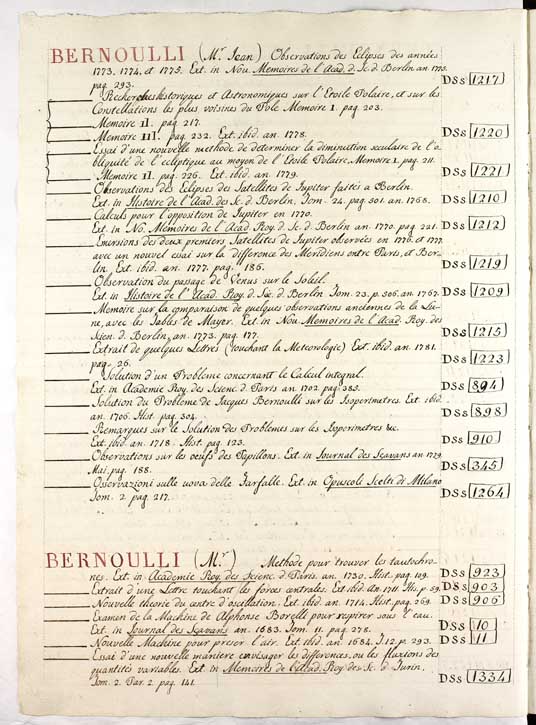 BERNOULLI (Mr. Jean) Observations des Eclipses des années
1773. 1774. et 1775. Ext. in Nou. Memoires de l'Acad. d. Sc. d. Berlin an. 1773.
pag. 293. DSs 1217
Recherches historiques et Astronomiques sur l'Etoile Polaire, et sur les
Constellations les plus voisines du Pole Memoire I. pag. 203.
Memoire II. pag. 217.
Memoire III. pag. 232. Ext. ibid. an. 1778. DSs 1220
Essai d'une nouvelle methode de determiner la diminution seculaire de l'o-
bliquité de l'ecliptique au moyen de l'Etoile Polaire. Memoire I. pag. 211.
Memoire II. pag. 226. Ext. ibid. an. 1779. DSs 1221
Observations des Eclipses des Satellites de Jupiter faites a Berlin.
Ext. in Histoire de l'Acad. des Sc. d. Berlin. Tom. 24. pag. 301. an. 1768. DSs 1210
Calculs pour l'opposition de Jupiter en 1770.
Ext. in No. Mémoires de l'Acad. Roy. d. Sc. d. Berlin an. 1770. pag. 221. DSs 1212
Emersions des deux premiers Satellites de Jupiter observées en 1776. et 1777.
avec un nouvel essai sur la difference des Meridiens entre Paris, et Ber-
lin. Ext. ibid. an. 1777. pag. 186. DSs 1219
Observation du passage de Venus sur le Soleil.
Ext. in Histoire de l'Acad. Roy. d. Sc. d. Berlin Tom. 23. p. 306. an. 1767. DSs 1209
Memoire sur la comparaison de quelques observations anciennes de la Lu-
ne, avec les Tables de Mayer. Ext. in Nou. Memoires de l'Acad. Roy. des
Scien. d. Berlin, an. 1773. pag. 177. DSs 1215
Extrait de quelques Lettres (touchant la Meteorologie) Ext. ibid. an. 1781.
pag. 26. DSs 1223
Solution d'un Probleme concernant le Calcul integral.
Ext. in Academie Roy. des Scienc. d. Paris an. 1702. pag. 385. DSs 894
Solution du Probleme de Jacques Bernoulli sur les Isoperimetres. Ext. ibid.
an. 1706. Hist. pag. 304. DSs 898
Remarques sur le Solution des Problemes sur les Isoperimetres &c.
Ext. ibid. an. 1718. Hist. pag. 123. DSs 910
Observations sur les oeufs des Papillons. Ext. in Journal des Sçavans an. 1779.
Mai. pag. 188. DSs 345
Osservazioni sulle uova delle Farfalle. Ext. in Opuscoli Scelti di Milano
Tom. 2 pag. 217. DSs 1264
BERNOULLI (Mr.) Methode pour trouver les tautochro-
nes. Ext. in Academie Roy. des Scienc. d. Paris. an. 1730. Hist. pag. 119. DSs 923
Extrait d'une Lettre touchant les forces centrales. Ext. ibid. an. 1711. His. p. 59. DSs 903
Nouvelle theorie du centre d'oscillation. Ext. ibid. an. 1714. Hist. pag. 269. DSs 906
Examen de la Machine de Alphonse Borelli pour respirer sous l'eau.
Ext. in Journal des Sçavans an. 1683. Tom. 11. pag. 278. DSs 10
Nouvelle Machine pour peser l'air. Ext. ibid. an. 1684. T. 12. p. 293. DSs 11
Essai d'une nouvelle maniere envisager les differences, ou les fluxions des
quantités variables. Ext. in Memoires de l'Acad. Roy. des Sc. d. Turin.
Tom. 2. Par. 2. pag. 141. DSs 1334